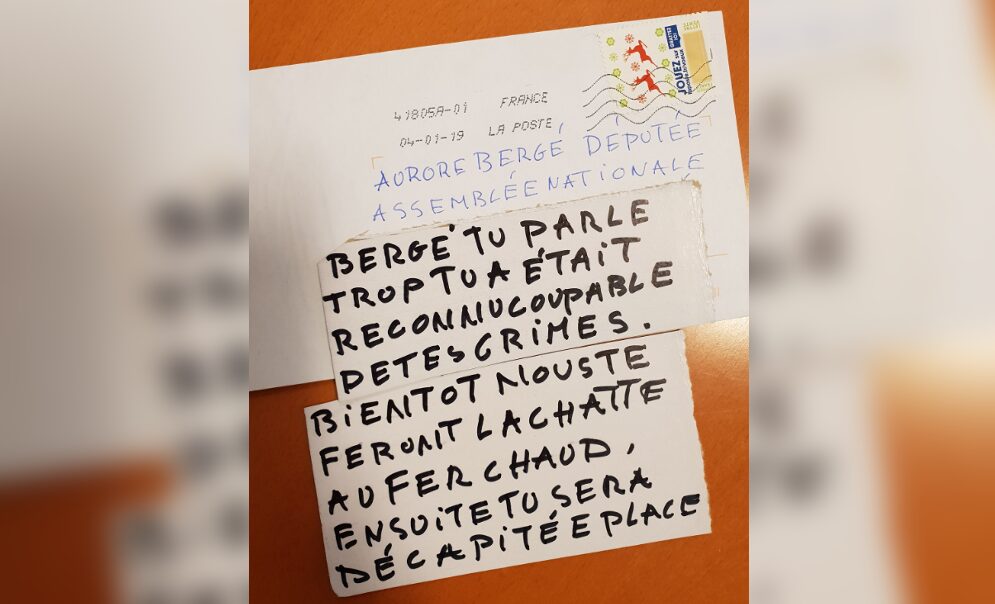 41805A-01 FRANCE
04-01-19 LA POSTE
JOUEZ SUR
AURORE BERGÉ DÉPUTÉE
ASSEMBLÉE NATIONALE
BERGÉ TU PARLE
TROP TU A ÉTAIT
RECONNU COUPABLE
DE TES CRIMES.
BIENTOT NOUS TE
FERONT LA CHATTE
AU FER CHAUD,
ENSUITE TU SERA
DÉCAPITÉE PLACE